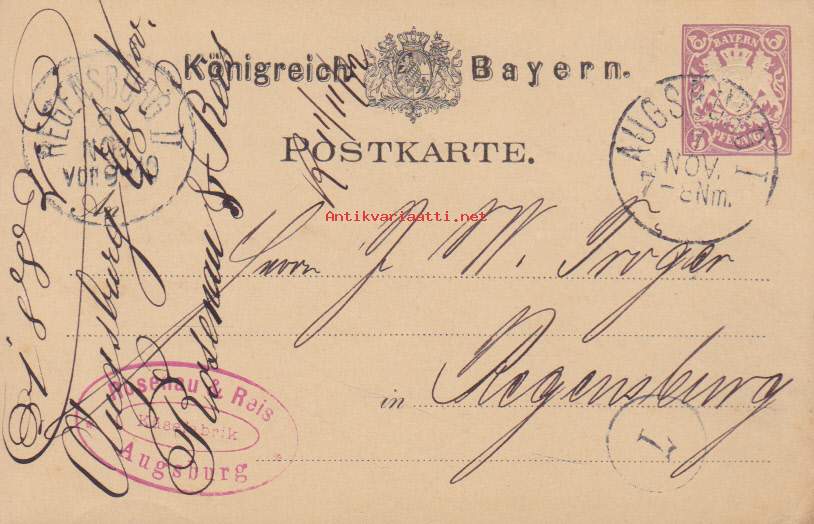 Königreich Bayern.
POSTKARTE.
BAYERN
PFENNIG
AUGSBURG
NOV.
7-8 Nm.
I
REGENSBURG II
NOV
VOR. 9-10
Antikvariaatti.net
Herrn J. W. Troger
in Regensburg
Rosenau & Reis
Käsefabrik
Augsburg
Augsburg
Rosenau & Reis
1